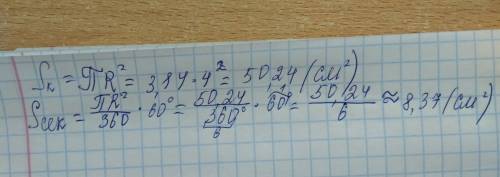 Sк = ПR² = 3,14 · 4² = 50,24 (см²)
Sсек = ПR²/360 · 60° = 50,24/360° · 60° = 50,24/6 ≈ 8,37 (см²)